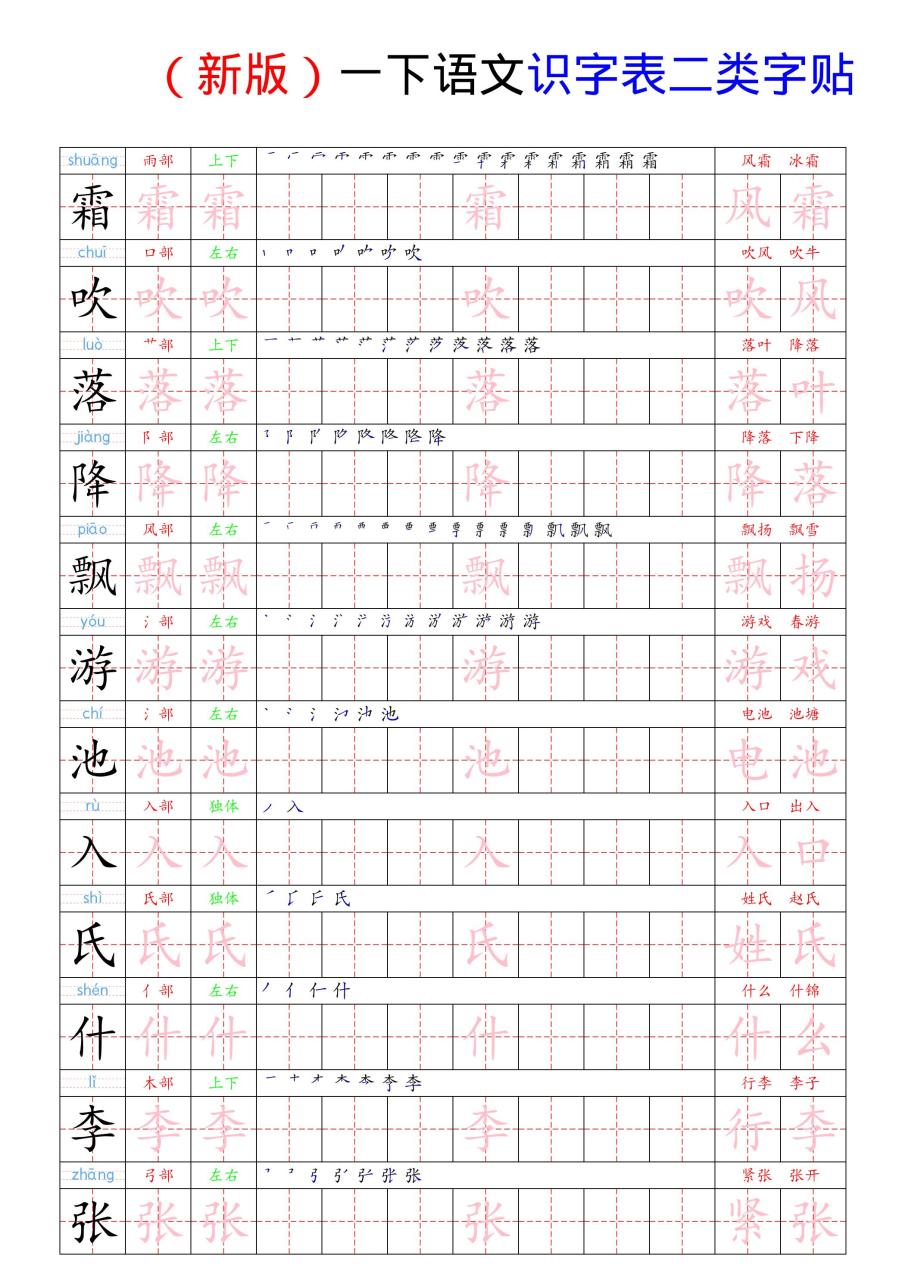 （新版）一下语文识字表二类字贴
shuāng 雨部 上下 风霜 冰霜
霜 霜 霜 霜 风 霜
chuī 口部 左右 丨 𠃍 口 吹 吹风 吹牛
吹 吹 吹 吹 吹 风
luò 艹部 上下 落 落叶 降落
落 落 落 落 落 叶
jiàng 阝部 左右 降 降落 下降
降 降 降 降 降 落
piāo 风部 左右 飘 飘扬 飘雪
飘 飘 飘 飘 飘 扬
yóu 氵部 左右 游 游戏 春游
游 游 游 游 游 戏
chí 氵部 左右 池 电池 池塘
池 池 池 池 电 池
rù 入部 独体 丿 入 入口 出入
入 入 入 入 入 口
shì 氏部 独体 氏 姓氏 赵氏
氏 氏 氏 氏 姓 氏
shén 亻部 左右 丿 亻 什 什么 什锦
什 什 什 什 什 么
lǐ 木部 上下 一 十 才 木 李 行李 李子
李 李 李 李 行 李
zhāng 弓部 左右 张 紧张 张开
张 张 张 张 紧 张